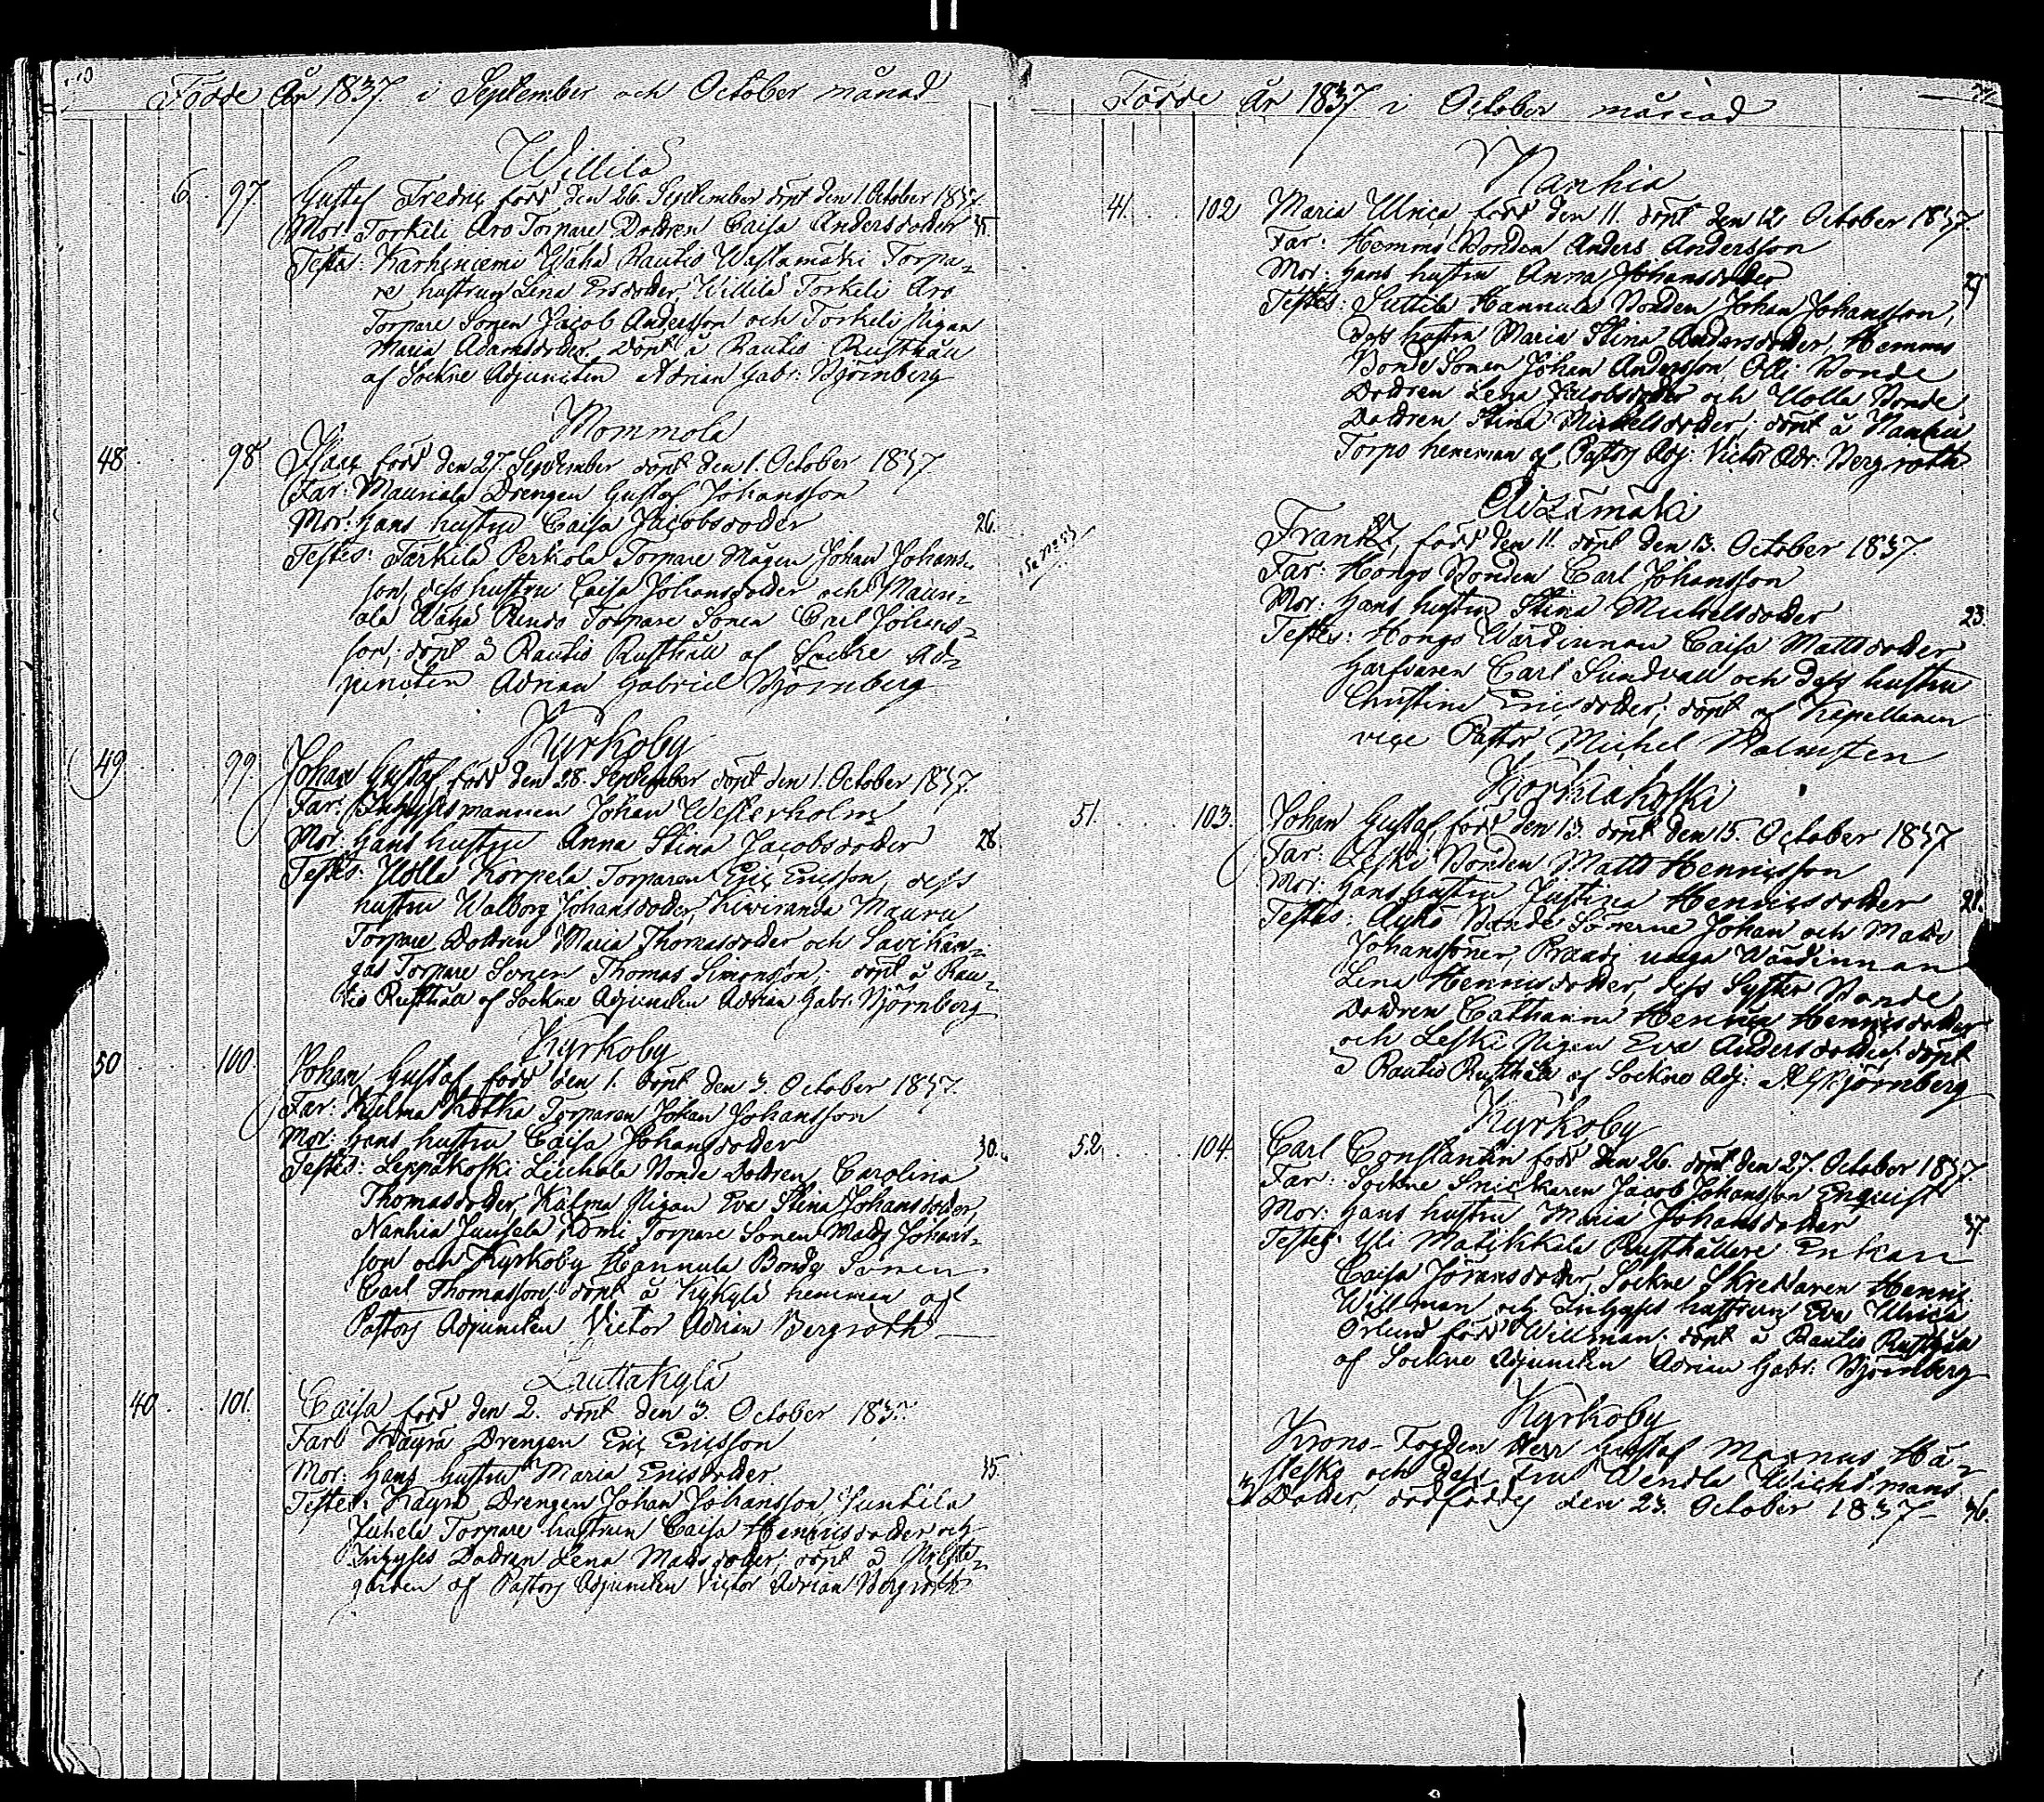 Födde År 1837. i September och October månad
Willilä
6. 97. Gustaf Fredric född den 26. September döpt den 1. October 1837.
Mor: Torkeli Aro Torpare Dottren Caisa Andersdotter 35.
Testes: Karhiniemi Wähä Rautio Wastamäki Torpa-
re hustrun Lena Ersdotter, Willilä Torkeli Aro
Torpare Sonen Jacob Andersson och Torkeli Pigan
Maria Adamsdotter. döpt å Rautio Rusthåll
af Sockne Adjuncten Adrian Gabr: Björnberg
Mommola
48. 98. Isac född den 27. September döpt den 1. October 1837
Far: Mauriala Drengen Gustaf Johansson
Mor: Hans hustru Caisa Jacobsdotter 26.
Testes: Tarkila Perkola Torpare Mågen Johan Johans-
son, dess hustru Caisa Johansdotter och Mauri-
ala Wähä Torpare Sonen Carl Johans-
son; döpt å Rautio Rusthåll af Sockne Ad-
juncten Adrian Gabriel Björnberg
Kyrkoby
49. 99. Johan Gustaf, född den 28. September döpt den 1. October 1837.
Far: Inhysesmannen Johan Westerholm
Mor: Hans hustru Anna Stina Jacobsdotter 28.
Testes: Ylolla Korpela Torparen Eric Ericsson, dess
hustru Walborg Johansdotter, Kiviranda Mauru
Torpare Dottren Maria Thomasdotter och Savikan-
gas Torpare Sonen Thomas Simonsson; döpt å Rau-
tio Rusthåll af Sockne Adjuncten Adrian Gabr. Björnberg
Kyrkoby
50. 100. Johan Gustaf, född den 1. döpt den 3. October 1837.
Far: Kotka Torparen Johan Johansson
Mor: Hans hustru Caisa Johansdotter 30.
Testes: Leppäkoski Liuhala Bonde Dottren Carolina
Thomasdotter, Pigan Eva Stina Johansdotter,
Nanhia Torpare Sonen Matts Johans-
son och Kyrkoby Hannula Bonde Sonen
Carl Thomasson; döpt å Kykylä hemman af
Pastors Adjuncten Victor Adrian Bergroth
Luttakylä
40. 101. Caisa född den 2. döpt den 3. October 1837.
Far: Käyrä Drengen Eric Ericsson
Mor: Hans hustru Maria Ericsdotter 35.
Testes: Käyrä Drengen Johan Johansson, Junkila
Torpare hustrun Caisa Henricsdotter och
Inhyses Dottren Lena Mattsdotter; döpt å
gården af Pastors Adjuncten Victor Adrian Bergroth
Födde År 1837 i October månad
Nanhia
41. 102. Maria Ulrica, född den 11. döpt den 12. October 1837.
Far: Hemmo Bonden Anders Andersson
Mor: Hans hustru Anna Johansdotter
Testes: Suttila Hannula Bonden Johan Johansson,
dess hustru Maria Stina Andersdotter, Hemmo
Bonde Sonen Johan Andersson, Olli Bonde
Dottren Lena Jacobsdotter och Ylolla Bonde
Dottren Stina Michelsdotter; döpt å Nanhia
Torpo hemman af Pastors Adj: Victor Adr: Bergroth
Frantz, född den 11. döpt den 13. October 1837.
Far: Hongo Bonden Carl Johansson
Mor: Hans hustru Stina Michelsdotter 23.
Testes: Hongo Wärdinnan Caisa Mattsdotter
Garfvaren Carl Sundvall och dess hustru
Christina Ericsdotter; döpt af Kapellanen
vice Pastor Michel Malmsten
Korkiakoski
51. 103. Johan Gustaf, född den 13. döpt den 15. October 1837
Far: Leski Bonden Matts Henricsson
Mor: Hans hustru Justina Henricsdotter 21.
Testes: Bonde Sönerne Johan och Matts
Johanssöner, unga Wärdinnan
Lena Henricsdotter, dess Syster Bonde
Dottren Catharina Henricsdotter
och Leski Pigan Eva Andersdotter; döpt
å Rautio Rusthåll af Sockne Adj: A G Björnberg
Kyrkoby
52. 104. Carl Constantin född den 26. döpt den 27. October 1837.
Far: Sockne Snickaren Jacob Johansson Enquist
Mor: Hans hustru Maria Johansdotter 37.
Testes: Yli Matikkala Rusthållare Enkan
Caisa Göransdotter, Sockne Skreddaren Henric
Willman och Inhyses hustrun Eva Ulrica
Orlund född Willman; döpt å Rautio Rusthåll
af Sockne Adjuncten Adrian Gabr: Björnberg
Kyrkoby
Krono-Fogden Herr Gustaf Magnus Hä-
stesko och dess Fru Wendla Wichtmans
Dotter, dödfödd den 23. October 1837 - 36.